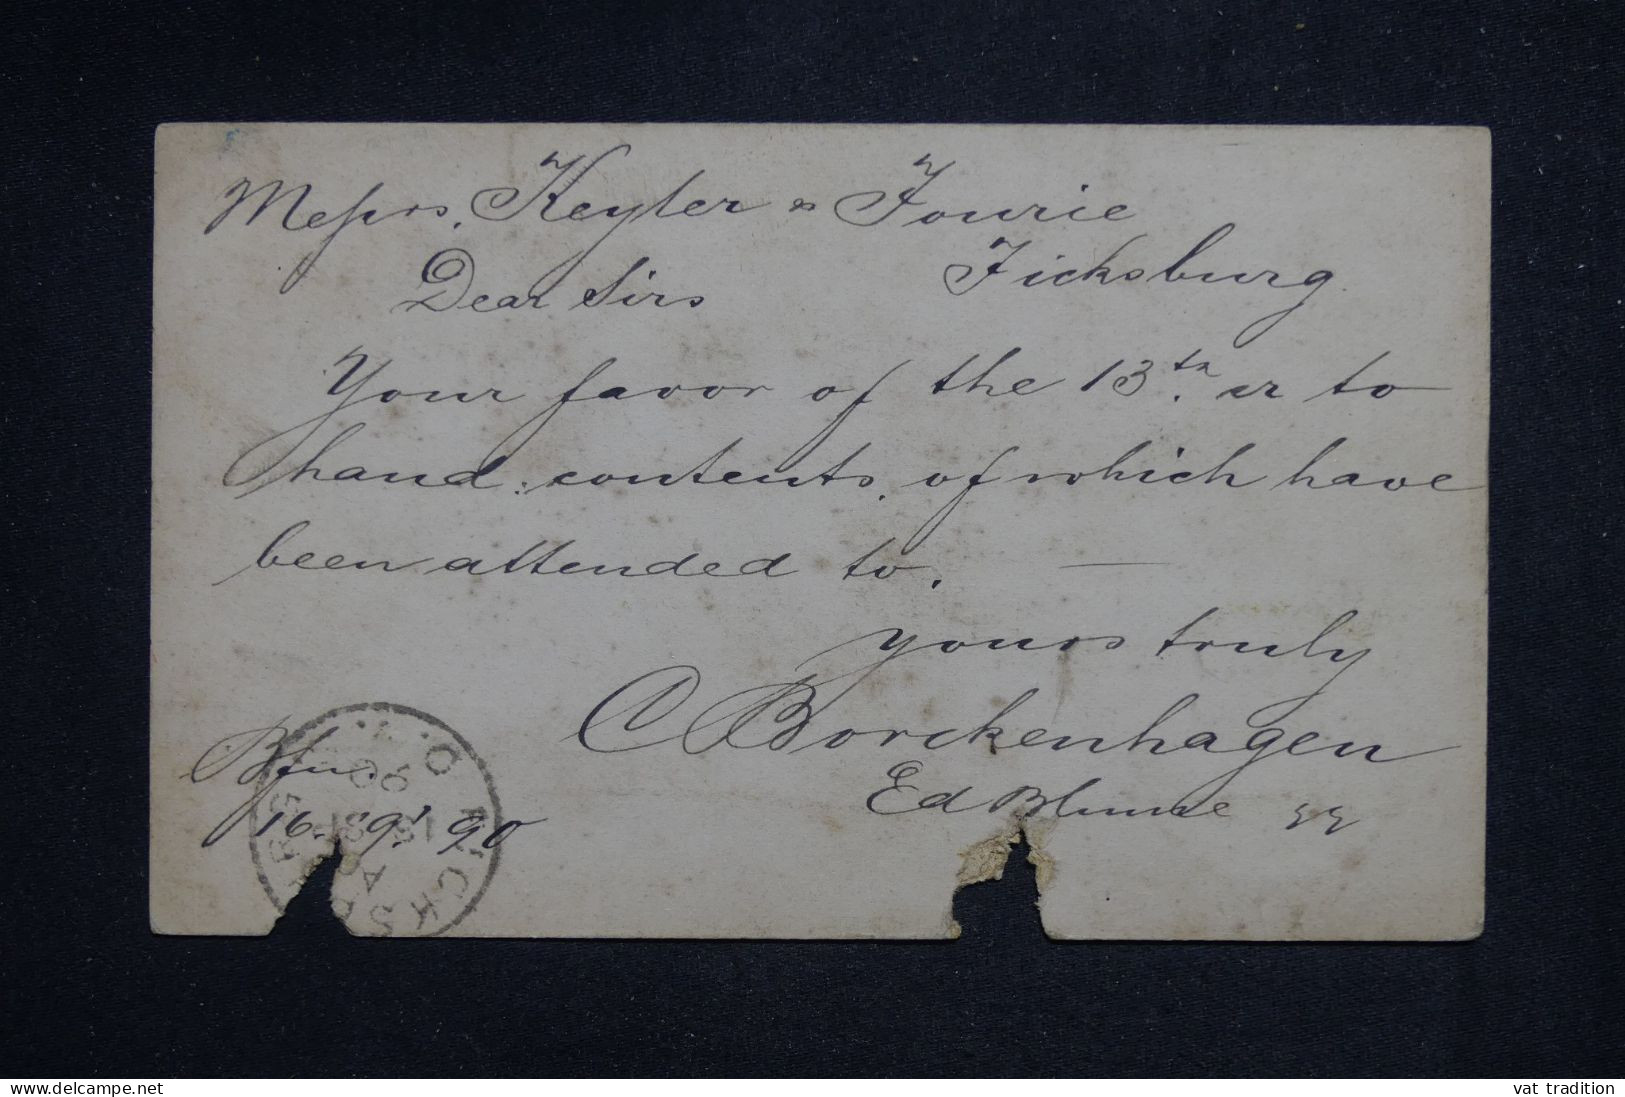 Messrs. Keyter & Fourie
Ficksburg.
Dear Sirs
Your favor of the 13th. is to
hand: contents. of which have
been attended to. —
yours truly
C Borckenhagen
Bfn
16. 9. 90
FICKSBURG
www.delcampe.net
vat tradition